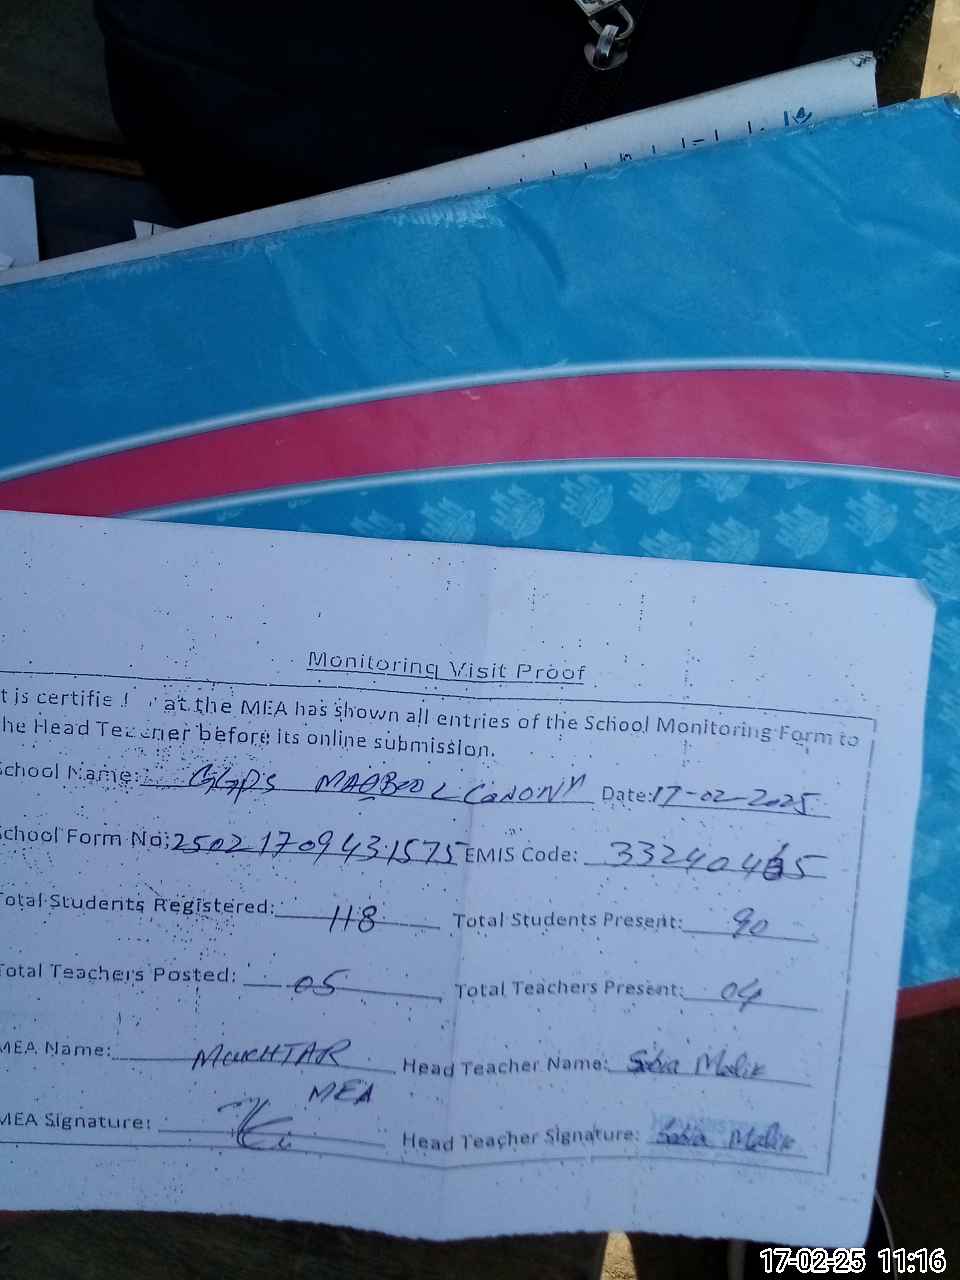 Monitoring Visit Proof
t is certified that the MEA has shown all entries of the School Monitoring Form to
he Head Teacher before its online submission.
School Name: GGPS MAQBOOL CONONY Date: 17-02-2025
School Form No: 25021709431575 EMIS Code: 33240465
Total Students Registered: 118 Total Students Present: 90
Total Teachers Posted: 05 Total Teachers Present: 04
MEA Name: MUKHTAR Head Teacher Name: Sobia Malik
MEA
MEA Signature: Head Teacher Signature: Sobia Malik
17-02-25 11:16